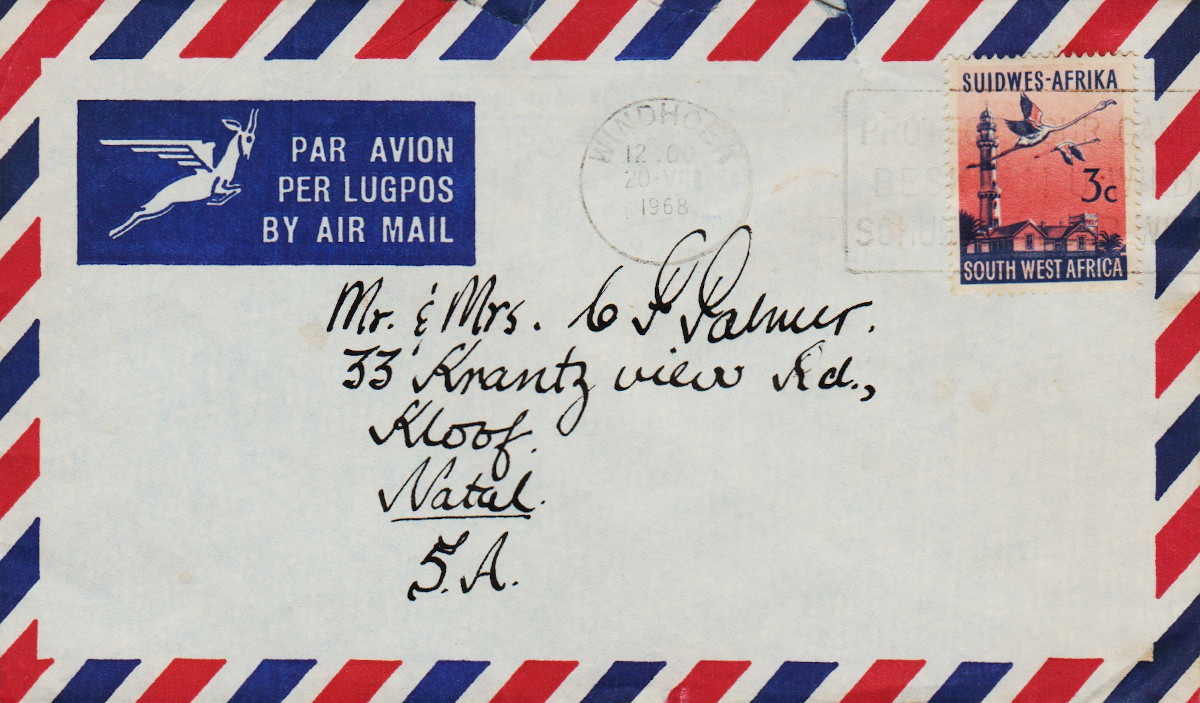 PAR AVION
PER LUGPOS
BY AIR MAIL
WINDHOEK
12.00
20-VII
1968
SUIDWES-AFRIKA
3c
SOUTH WEST AFRICA
Mr. & Mrs. C F Palmer.
33 Krantz view Rd.,
Kloof.
Natal.
S.A.